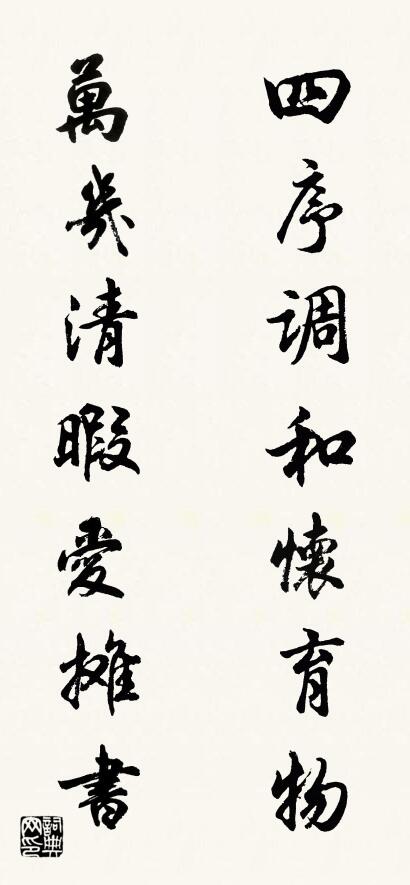 四序調和懷育物
萬幾清暇愛攤書
詞典网印